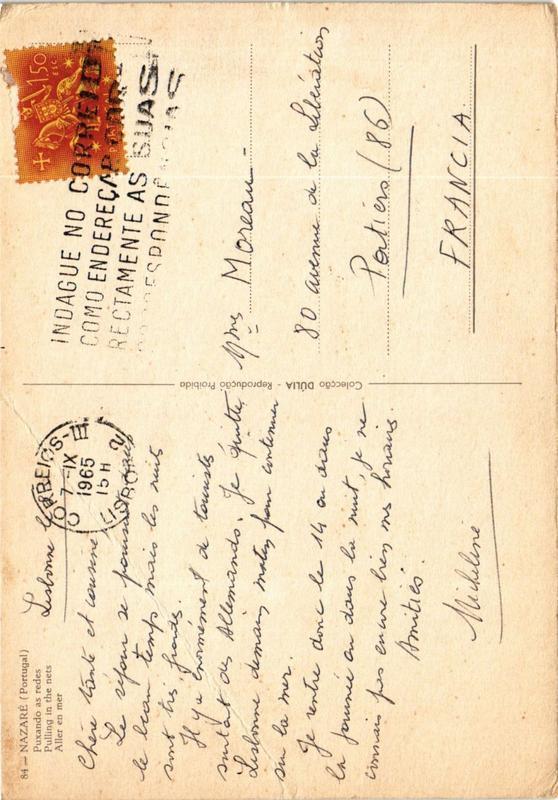 84 — NAZARÉ (Portugal)
Puxando as redes
Pulling in the nets
Aller en mer
Lisbonne le
Chère tante et cousine
Le séjour se poursuit avec
le beau temps mais les nuits
sont très froides.
Il y a énormément de touristes
surtout des Allemands. Je quitte
Lisbonne demain matin pour continuer
sur la mer.
Je rentre donc le 14 ou dans
la journée ou dans la nuit, je ne
connais pas encore bien mes horaires.
Amitiés.
Micheline
CORREIOS
7-IX
1965
15H
LISBOA 2
Colecção DÚLIA - Reprodução Proibida
1$50
INDAGUE NO CORREIO
COMO ENDEREÇAR
RECTAMENTE AS SUAS
CORRESPONDÊNCIAS
Mmes Moreau
80 avenue de la Libération
Poitiers (86)
FRANCIA